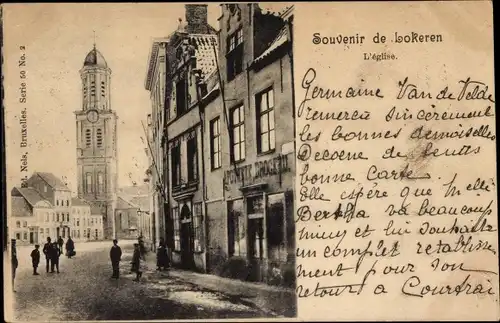 Souvenir de Lokeren
L'église.
Ed. Nels, Bruxelles. Serie 50 No. 2
Germaine Van de Velde
remercie sincèrement
les bonnes demoiselles
Decoene de leurs
bonne carte.
Elle espère que Melle
Bertha va beaucoup
mieux et lui souhaite
un complet rétablisse
ment pour son
retour à Courtrai